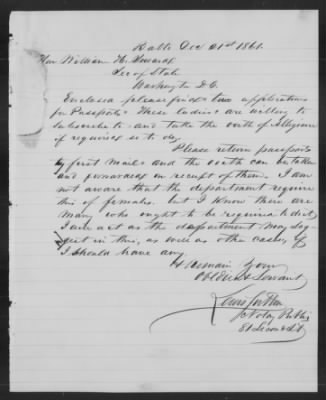 Balto Dec 21st 1861.
Hon William H. Seward
Sec of State
Washington D.C.
Enclosed please find two applications
for Passports These ladies are willing to
subscribe to and take the oath of Allegiance
if required so to do,
Please return passports
by first mail and the oath can be taken
and forwarded on receipt of them. I am
not aware that the department require
this of females. but I know there are
many who ought to be required to do it,
I will act as the department may sug-
gest in this, as well as other cases, if
I should have any.
I Remain Your
Obdient Servant
Notary Public